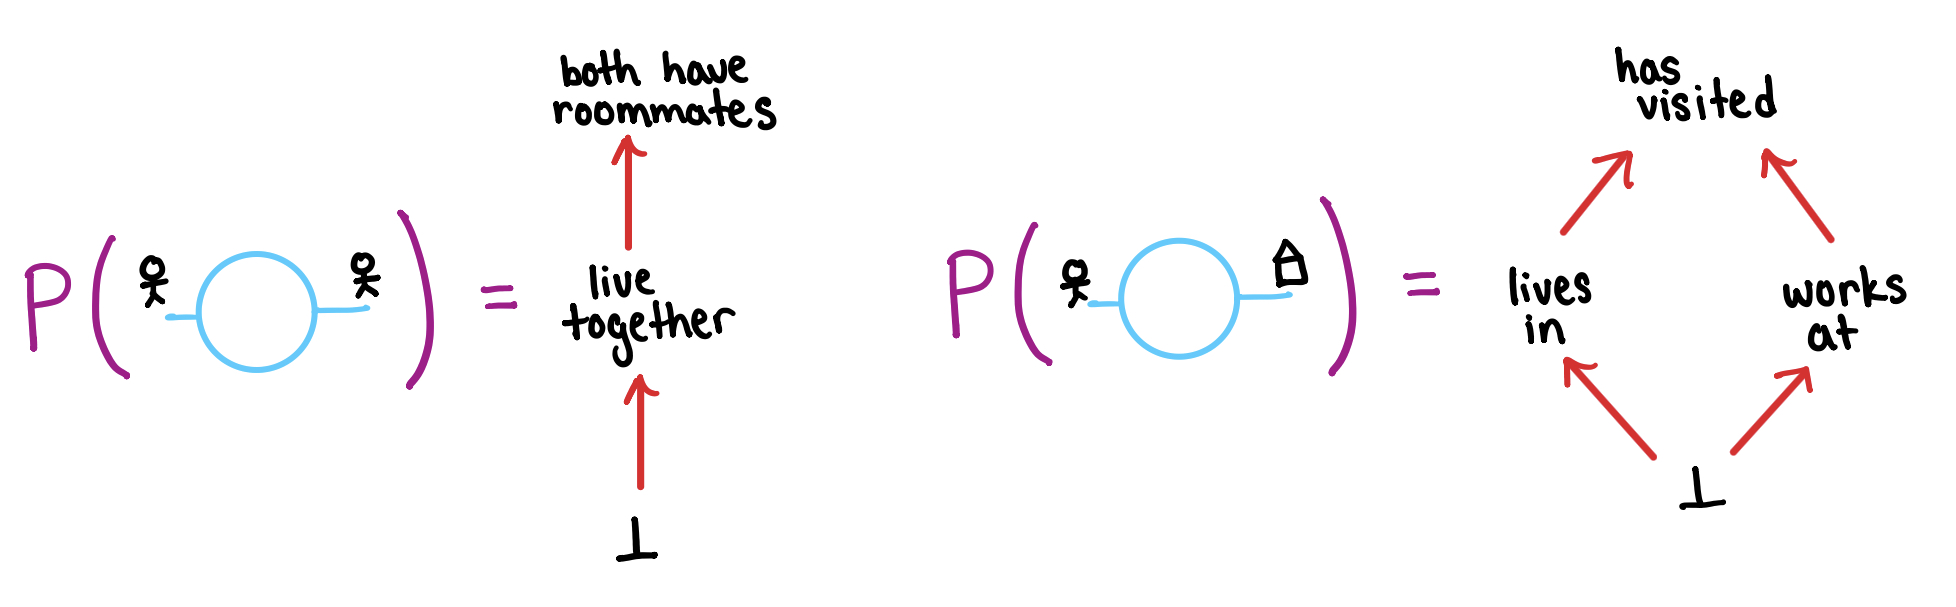 P( ) =
both have
roommates
live
together
⊥
P( ) =
has
visited
lives
in
works
at
⊥